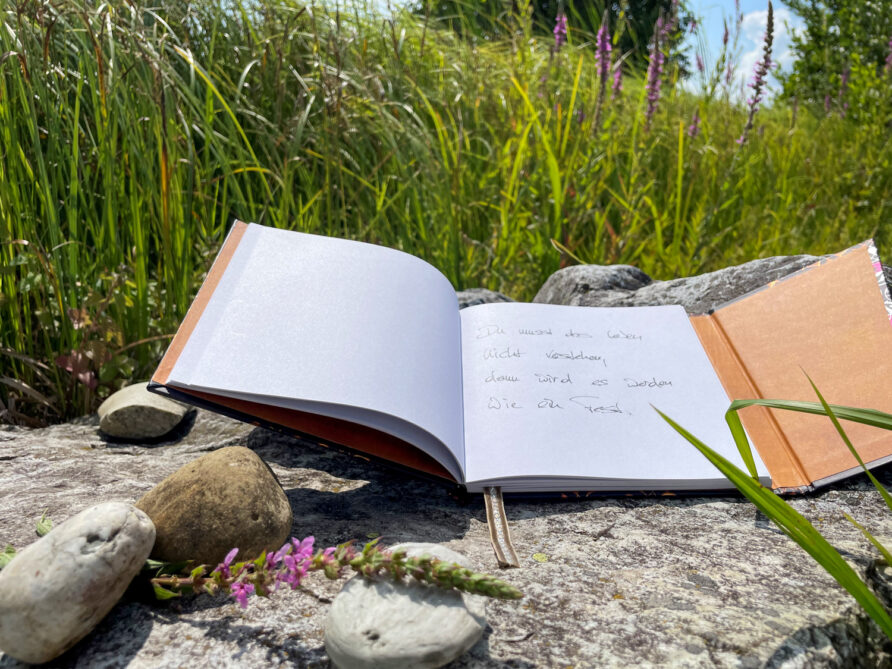 Du musst das Leben
nicht verstehen,
dann wird es werden
wie ein Fest.